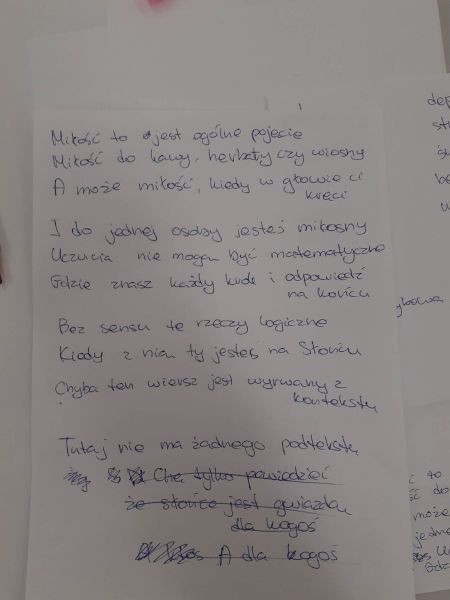 Miłość to jest ogólne pojęcie
Miłość do kawy, herbaty czy wiosny
A może miłość, kiedy w głowie ci
kręci
I do jednej osoby jesteś miłosny
Uczucia nie mogą być matematyczne
Gdzie znasz każdy krok i odpowiedź
na końcu
Bez sensu te rzeczy logiczne
Kiedy z nią ty jesteś na Słońcu
Chyba ten wiersz jest wyrwany z
kontekstu
Tutaj nie ma żadnego podtekstu
Chcę tylko powiedzieć
że słońce jest gwiazdą
dla kogoś
A dla kogoś
dep
st
be
głowa
ść do
może
jedne
Gdz